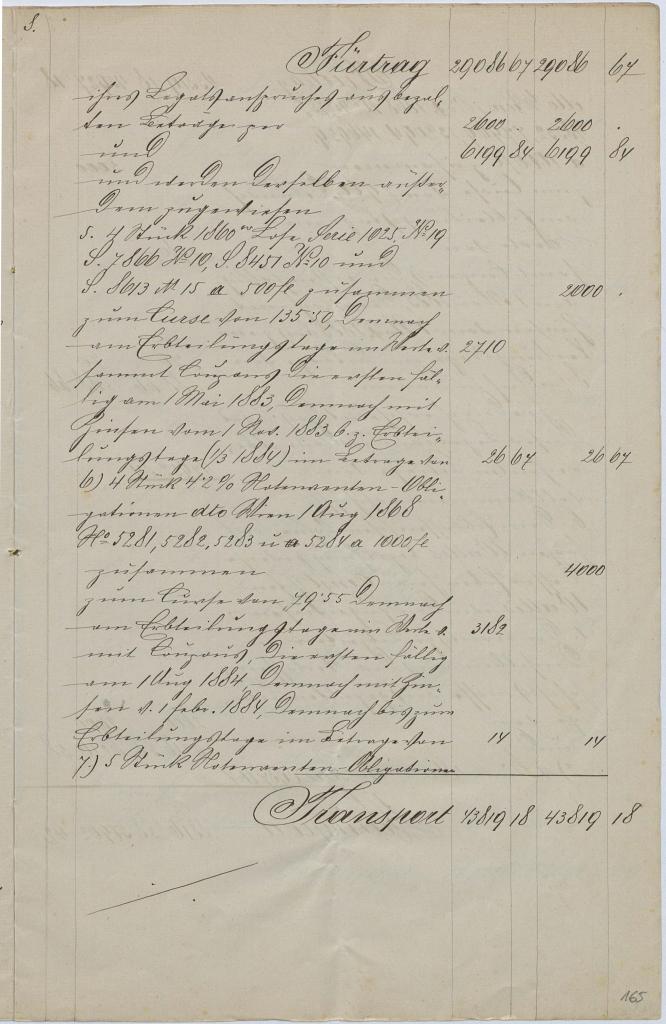 8.
Fürtrag 29086 67 29086 67
ihres Legatsanspruches ausbezal-
ten Beträge per 2600 . 2600 .
und 6199 84 6199 84
und werden derselben außer-
dem zugewiesen
5. 4 Stück 1860er Lose Serie 1025, No 19
S. 7866 No 10, S. 8451 No 10 und
S. 8613 No 15 a 500 fl zusammen 2000 .
zum Curse von 135·50, demnach
am Erbteilungstage im Werte v. 2710
sammt Coupons die ersten fäl-
lig am 1 Mai 1883, demnach mit
Zinsen vom 1 Nov. 1883 b. z. Erbtei-
lungstage (1/3 1884) im Betrage von 26 67 26 67
6) 4 Stück 4·2 % Notenrenten-Obli-
gationen dto Wien 1 Aug 1868
No 5281, 5282, 5283 u 5284 a 1000 fl
zusammen 4000
zum Curse von 79·55 demnach
am Erbteilungstage im Werte v. 3182
mit Coupons, die ersten fällig
am 1 Aug 1884, demnach mit Zin-
sen v. 1 Febr. 1884, demnach bis zum
Erbteilungstage im Betrage von 14 14
7.) 5 Stück Notenrenten-Obligationen
Transport 43819 18 43819 18
165